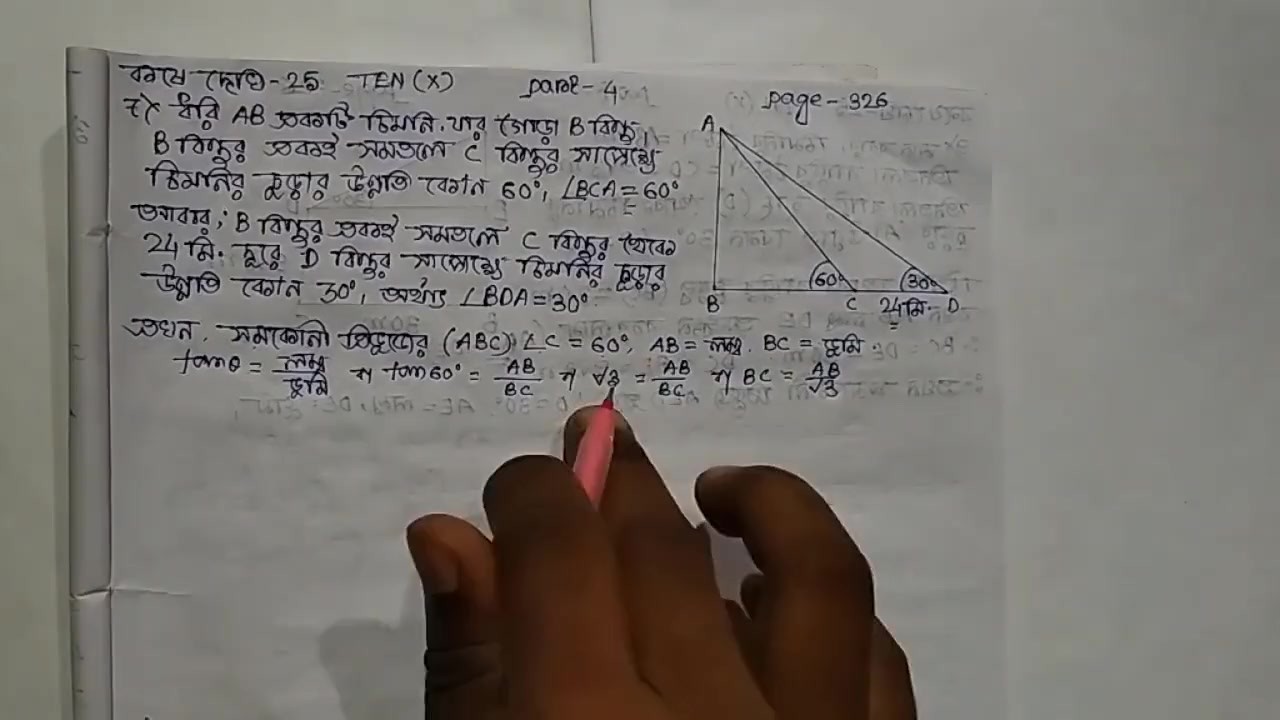 কষে দেখি - 25 TEN (X) part - 4 page - 326
7) ধরি AB একটি চিমনি. যার গোড়া B বিন্দু,
B বিন্দুর একই সমতলে C বিন্দুর সাপেক্ষে
চিমনির চূড়ার উন্নতি কোণ 60°, ∠BCA = 60°
আবার, B বিন্দুর একই সমতলে C বিন্দুর থেকে
24 মি. দূরে D বিন্দুর সাপেক্ষে চিমনির চূড়ার
উন্নতি কোণ 30°, অর্থাৎ ∠BDA = 30°
এখন, সমকোণী ত্রিভুজের (ABC) ∠C = 60°, AB = লম্ব. BC = ভূমি
tanθ = লম্ব/ভূমি বা tan60° = AB/BC বা √3 = AB/BC বা BC = AB/√3
A
60° 30°
B C 24 মি. D